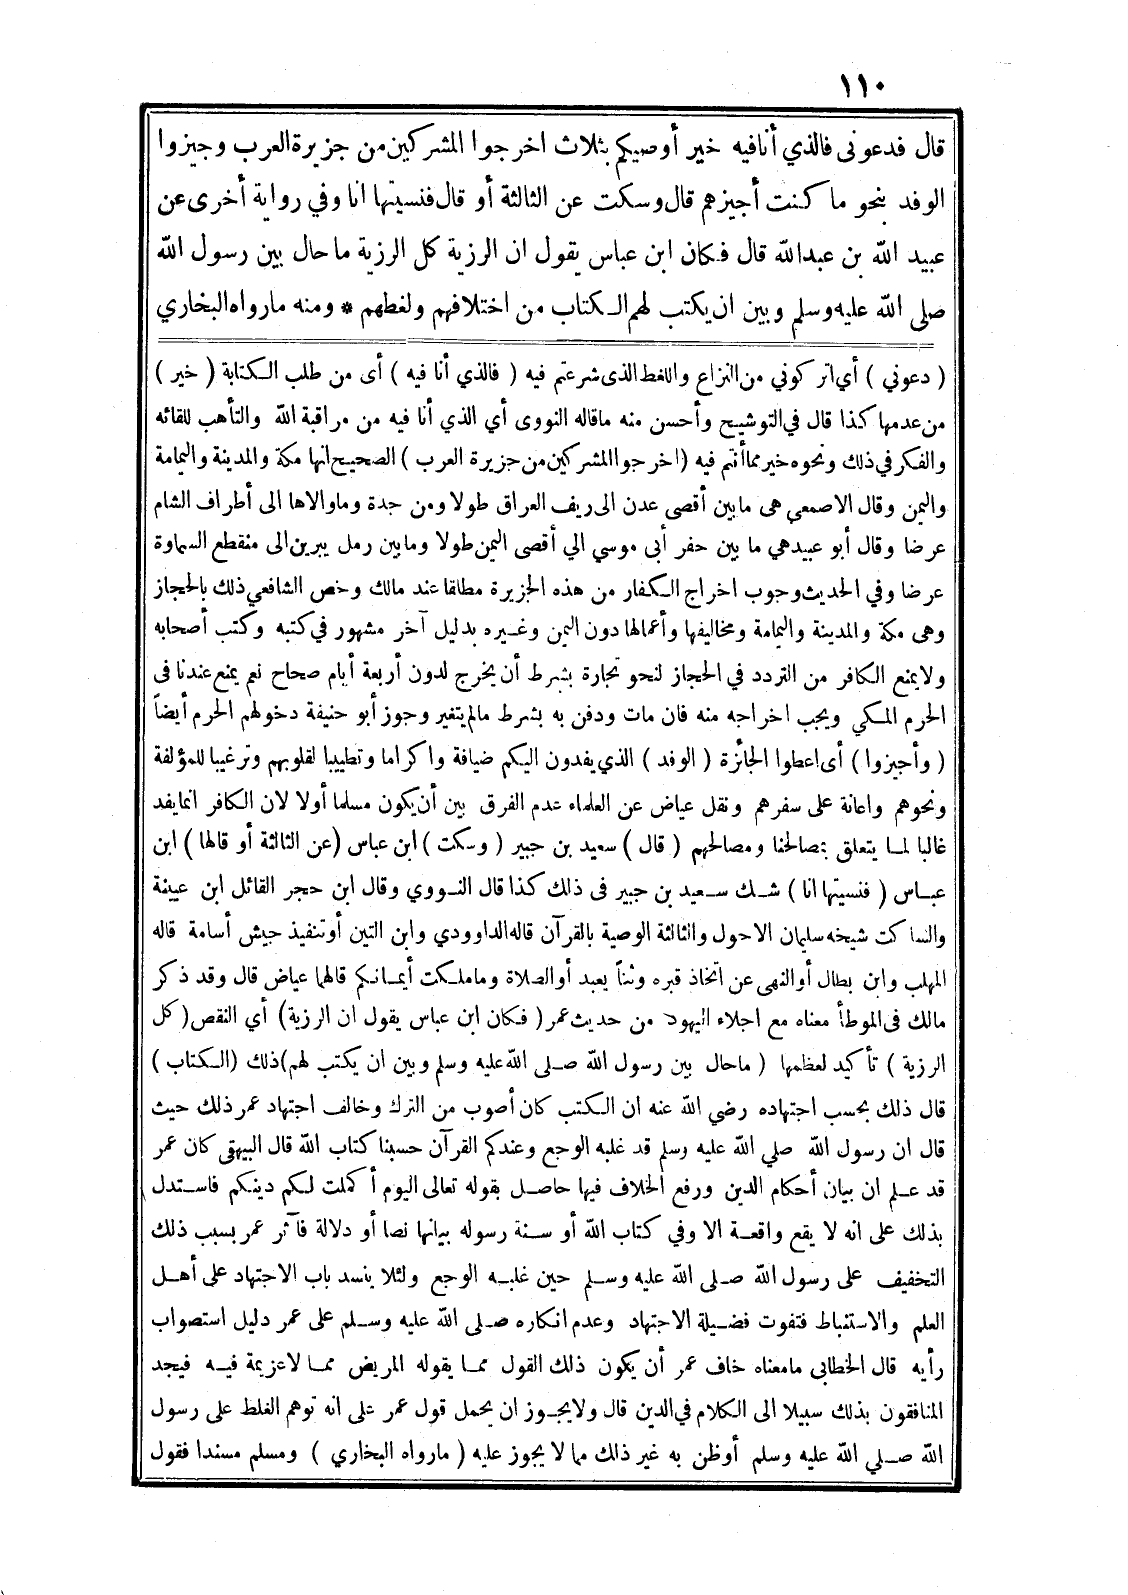 ١١٠
قال فدعونى فالذي أنا فيه خير أوصيكم بثلاث اخرجوا المشركين من جزيرة العرب وجيزوا
الوفد بنحو ما كنت أجيزهم قال وسكت عن الثالثة أو قال فنسيتها انا وفي رواية أخرى عن
عبيد الله بن عبدالله قال فكان ابن عباس يقول ان الرزية كل الرزية ما حال بين رسول الله
صلى الله عليه وسلم وبين ان يكتب لهم الكتاب من اختلافهم ولغطهم * ومنه مارواه البخاري
( دعوني ) أي اتركوني من النزاع واللغط الذى شرعتم فيه ( فالذي أنا فيه ) أى من طلب الكتابة ( خير )
من عدمها كذا قال في التوشيح وأحسن منه ماقاله النووى أي الذي أنا فيه من مراقبة الله والتأهب للقائه
والفكر في ذلك ونحوه خير مما أنتم فيه (اخرجوا المشركين من جزيرة العرب ) الصحيح انها مكة والمدينة واليمامة
واليمن وقال الاصمعي هى مابين أقصى عدن الى ريف العراق طولا ومن جدة وماوالاها الى أطراف الشام
عرضا وقال أبو عبيد هي ما بين حفر أبى موسي الي أقصى اليمن طولا ومابين رمل يبرين الى منقطع السماوة
عرضا وفي الحديث وجوب اخراج الكفار من هذه الجزيرة مطلقا عند مالك وخص الشافعي ذلك بالحجاز
وهى مكة والمدينة واليمامة ومخاليفها وأعمالها دون اليمن وغيره بدليل آخر مشهور في كتبه وكتب أصحابه
ولا يمنع الكافر من التردد في الحجاز لنحو تجارة بشرط أن يخرج لدون أربعة أيام صحاح نعم يمنع عندنا فى
الحرم المكي ويجب اخراجه منه فان مات ودفن به بشرط مالم يتغير وجوز أبو حنيفة دخولهم الحرم أيضاً
( وأجيزوا ) أى اعطوا الجائزة ( الوفد ) الذي يفدون اليكم ضيافة واكراما وتطييبا لقلوبهم وترغيبا للمؤلفة
ونحوهم واعانة على سفرهم ونقل عياض عن العلماء عدم الفرق بين أن يكون مسلما أولا لان الكافر انما يفد
غالبا لما يتعلق بمصالحنا ومصالحهم ( قال ) سعيد بن جبير ( وسكت ) ابن عباس (عن الثالثة أو قالها ) ابن
عباس ( فنسيتها انا ) شك سعيد بن جبير فى ذلك كذا قال النووي وقال ابن حجر القائل ابن عيينة
والساكت شيخه سليمان الاحول والثالثة الوصية بالقرآن قاله الداوودي وابن التين أو تنفيذ جيش أسامة قاله
المهلب وابن بطال أو النهى عن اتخاذ قبره وثناً يعبد أو الصلاة وماملكت أيمانكم قالها عياض قال وقد ذكر
مالك فى الموطأ معناه مع اجلاء اليهود من حديث عمر ( فكان ابن عباس يقول ان الرزية) أي النقص ( كل
الرزية ) تأكيد لعظمها ( ماحال بين رسول الله صلى الله عليه وسلم وبين ان يكتب لهم) ذلك (الكتاب )
قال ذلك بحسب اجتهاده رضي الله عنه ان الكتب كان أصوب من الترك وخالف اجتهاد عمر ذلك حيث
قال ان رسول الله صلي الله عليه وسلم قد غلبه الوجع وعندكم القرآن حسبنا كتاب الله قال البيهقى كان عمر
قد علم ان بيان أحكام الدين ورفع الخلاف فيها حاصل بقوله تعالى اليوم أكملت لكم دينكم فاستدل
بذلك على انه لا يقع واقعة الا وفي كتاب الله أو سنة رسوله بيانها نصا أو دلالة فآثر عمر بسبب ذلك
التخفيف على رسول الله صلى الله عليه وسلم حين غلبه الوجع ولئلا ينسد باب الاجتهاد على أهل
العلم والاستنباط فتفوت فضيلة الاجتهاد وعدم انكاره صلى الله عليه وسلم على عمر دليل استصواب
رأيه قال الخطابى مامعناه خاف عمر أن يكون ذلك القول مما يقوله المريض مما لا عزيمة فيه فيجد
المنافقون بذلك سبيلا الى الكلام في الدين قال ولا يجوز ان يحمل قول عمر على انه توهم الغلط على رسول
الله صلي الله عليه وسلم أوظن به غير ذلك مما لا يجوز عليه ( مارواه البخاري ) ومسلم مسندا فقول